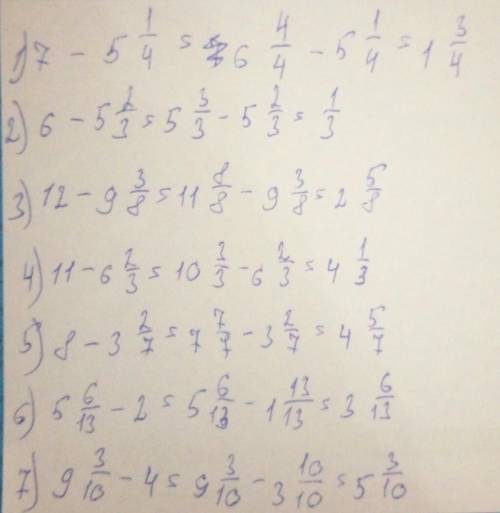 1) 7 - 5 1/4 = 6 4/4 - 5 1/4 = 1 3/4
2) 6 - 5 2/3 = 5 3/3 - 5 2/3 = 1/3
3) 12 - 9 3/8 = 11 8/8 - 9 3/8 = 2 5/8
4) 11 - 6 2/3 = 10 3/3 - 6 2/3 = 4 1/3
5) 8 - 3 2/7 = 7 7/7 - 3 2/7 = 4 5/7
6) 5 6/13 - 2 = 5 6/13 - 1 13/13 = 3 6/13
7) 9 3/10 - 4 = 9 3/10 - 3 10/10 = 5 3/10